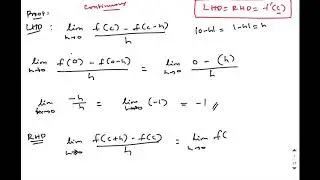 Proof: continuous
LHD = RHD = f'(c)
LHD: lim h→0 f(c) - f(c-h) / h
|0-h| = |-h| = h
lim h→0 f(0) - f(0-h) / h = lim h→0 0 - (h) / h
lim h→0 -h / h = lim h→0 (-1) = -1 //
RHD lim h→0 f(c+h) - f(c) / h = lim h→0 f(